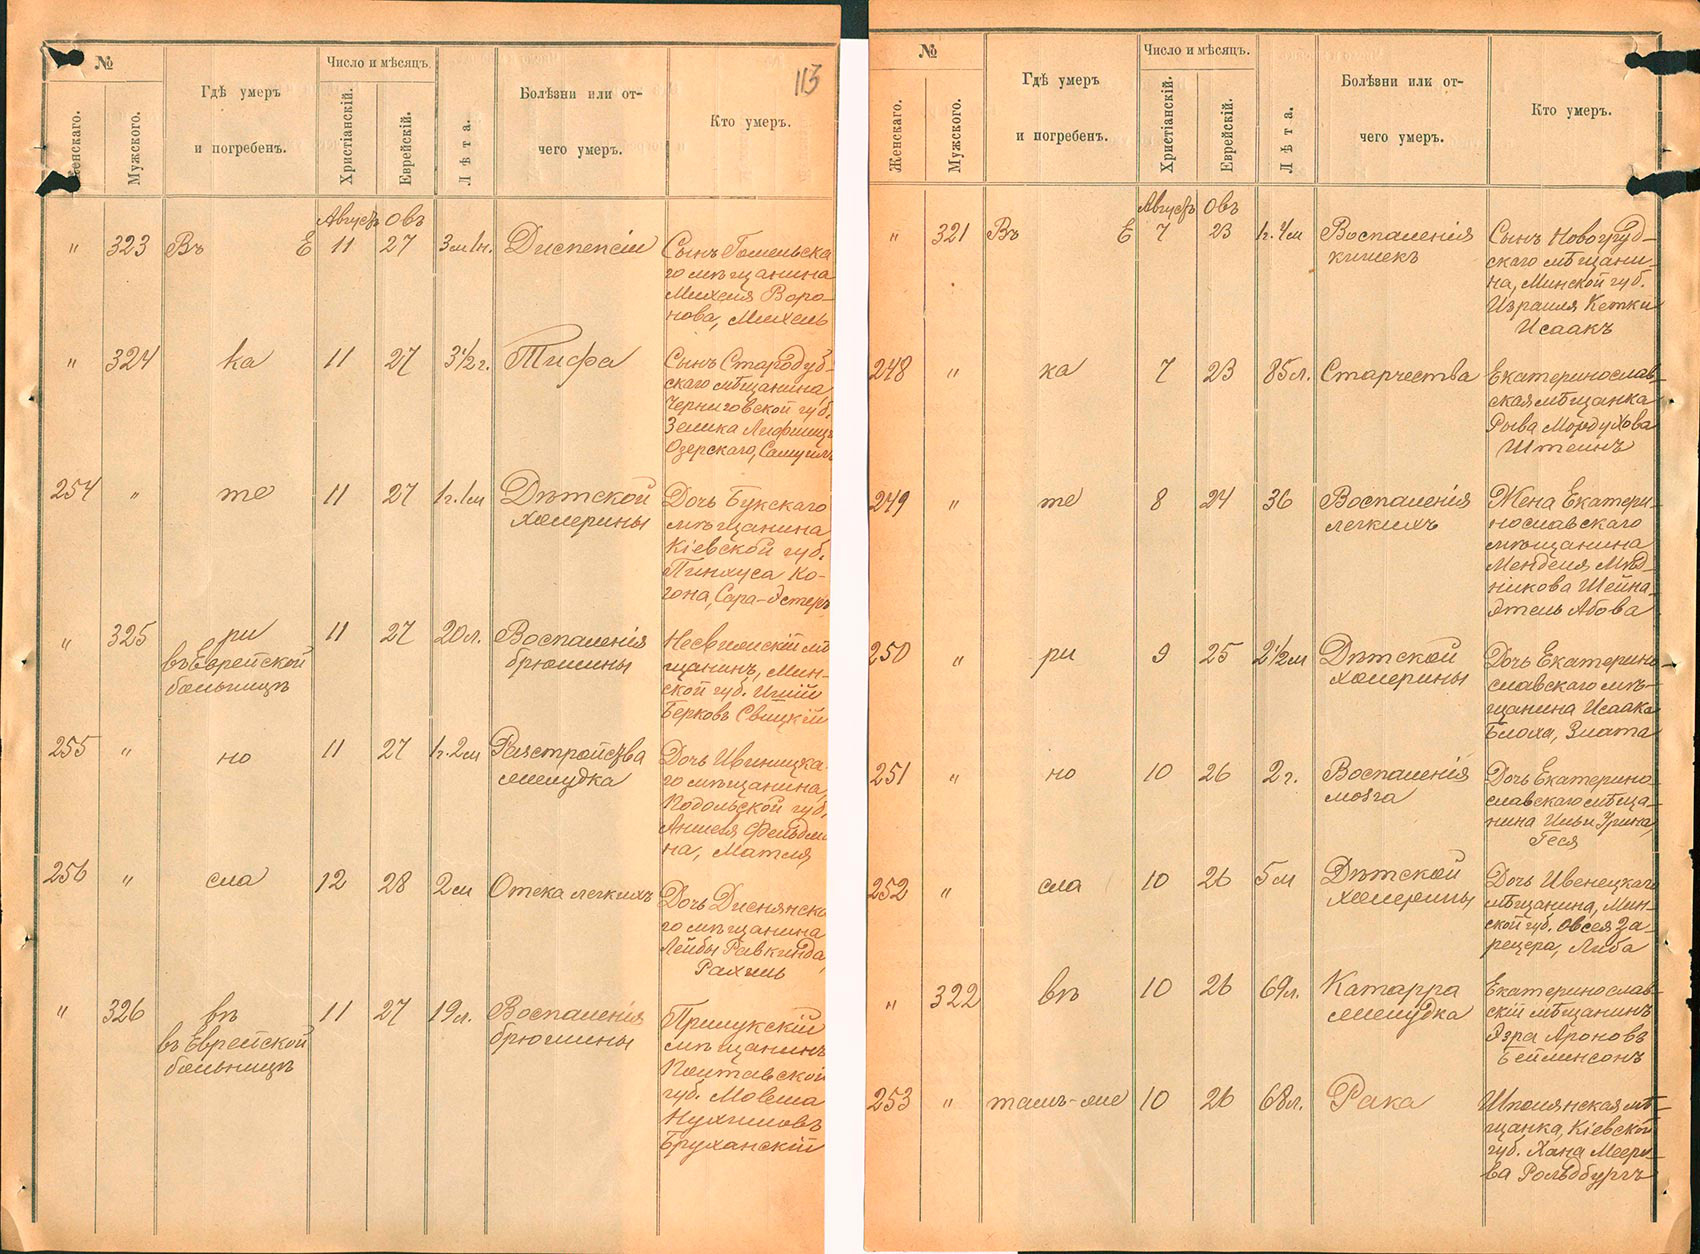 113
№
Женскаго.
Мужского.
Гдѣ умеръ
и погребенъ.
Число и мѣсяцъ.
Христіанскій.
Еврейскій.
Лѣта.
Болѣзни или от-
чего умеръ.
Кто умеръ.
Августъ Овъ
" 323 Въ Е 11 27 3м1н. Диспепсіи Сынъ Гомельска
го мѣщанина
Михеля Воро-
нова, Михель
" 324 ка 11 27 3 1/2 г. Тифа Сынъ Стародуб-
скаго мѣщанина
Черниговской губ.
Зелика Лифшицъ
Озерскаго, Самуилъ
254 " те 11 27 1г.1м Дѣтской
холерины
Дочь Букскаго
мѣщанина
Кіевской губ.
Пинхуса Ко-
гона, Сара-Эстеръ
" 325 ри
въ Еврейской
больницѣ
11 27 20л. Воспаленія
брюшины
Несвижскій мѣ
щанинъ, Мин-
ской губ.
Берковъ Свицкій
255 " но 11 27 1г.2м Разстройства
желудка
Дочь Ивницка-
го мѣщанина,
Подольской губ.
Аншеля Фельдма
на, Матля
256 " сла 12 28 2м Отека легкихъ Дочь Диснянска
го мѣщанина
Лейбы Равкинда,
Рахиль
" 326 вѣ
въ Еврейской
больницѣ
11 27 19л. Воспаленія
брюшины
Прилукскій
мѣщанинъ
Полтавской
губ. Мовша
Нухимовъ
Бруханскій
№
Женскаго.
Мужского.
Гдѣ умеръ
и погребенъ.
Число и мѣсяцъ.
Христіанскій.
Еврейскій.
Лѣта.
Болѣзни или от-
чего умеръ.
Кто умеръ.
Августъ Овъ
" 321 Въ Е 7 23 1г.4м Воспаленія
кишекъ
Сынъ Новогруд-
скаго мѣщани-
на, Минской губ.
Израиля Кетки
Исаакъ
248 " ка 7 23 85л. Старчества Екатеринослав-
ская мѣщанка
Рыва Мордухова
Штейнъ
249 " те 8 24 36 Воспаленія
легкихъ
Жена Екатери-
нославскаго
мѣщанина
Менделя Мѣд-
никова Шейна-
Этель Абова
250 " ри 9 25 2 1/2м Дѣтской
холерины
Дочь Екатерино-
славскаго мѣ-
щанина Исаака
Блоха, Злата
251 " но 10 26 2г. Воспаленія
мозга
Дочь Екатерино-
славскаго мѣща-
нина Ильи Урина,
Геся
252 " сла 10 26 5м Дѣтской
холерины
Дочь Ивенецкаго
мѣщанина, Мин-
ской губ. Овсея За-
рецера, Либа
" 322 вѣ 10 26 69л. Катарра
желудка
Екатеринослав-
скій мѣщанинъ
Эзра Ароновъ
Бейлинсонъ
253 " тамъ-же 10 26 68л. Рака Шполянская мѣ-
щанка, Кіевской
губ. Хана Мееро-
ва Рольдбургъ